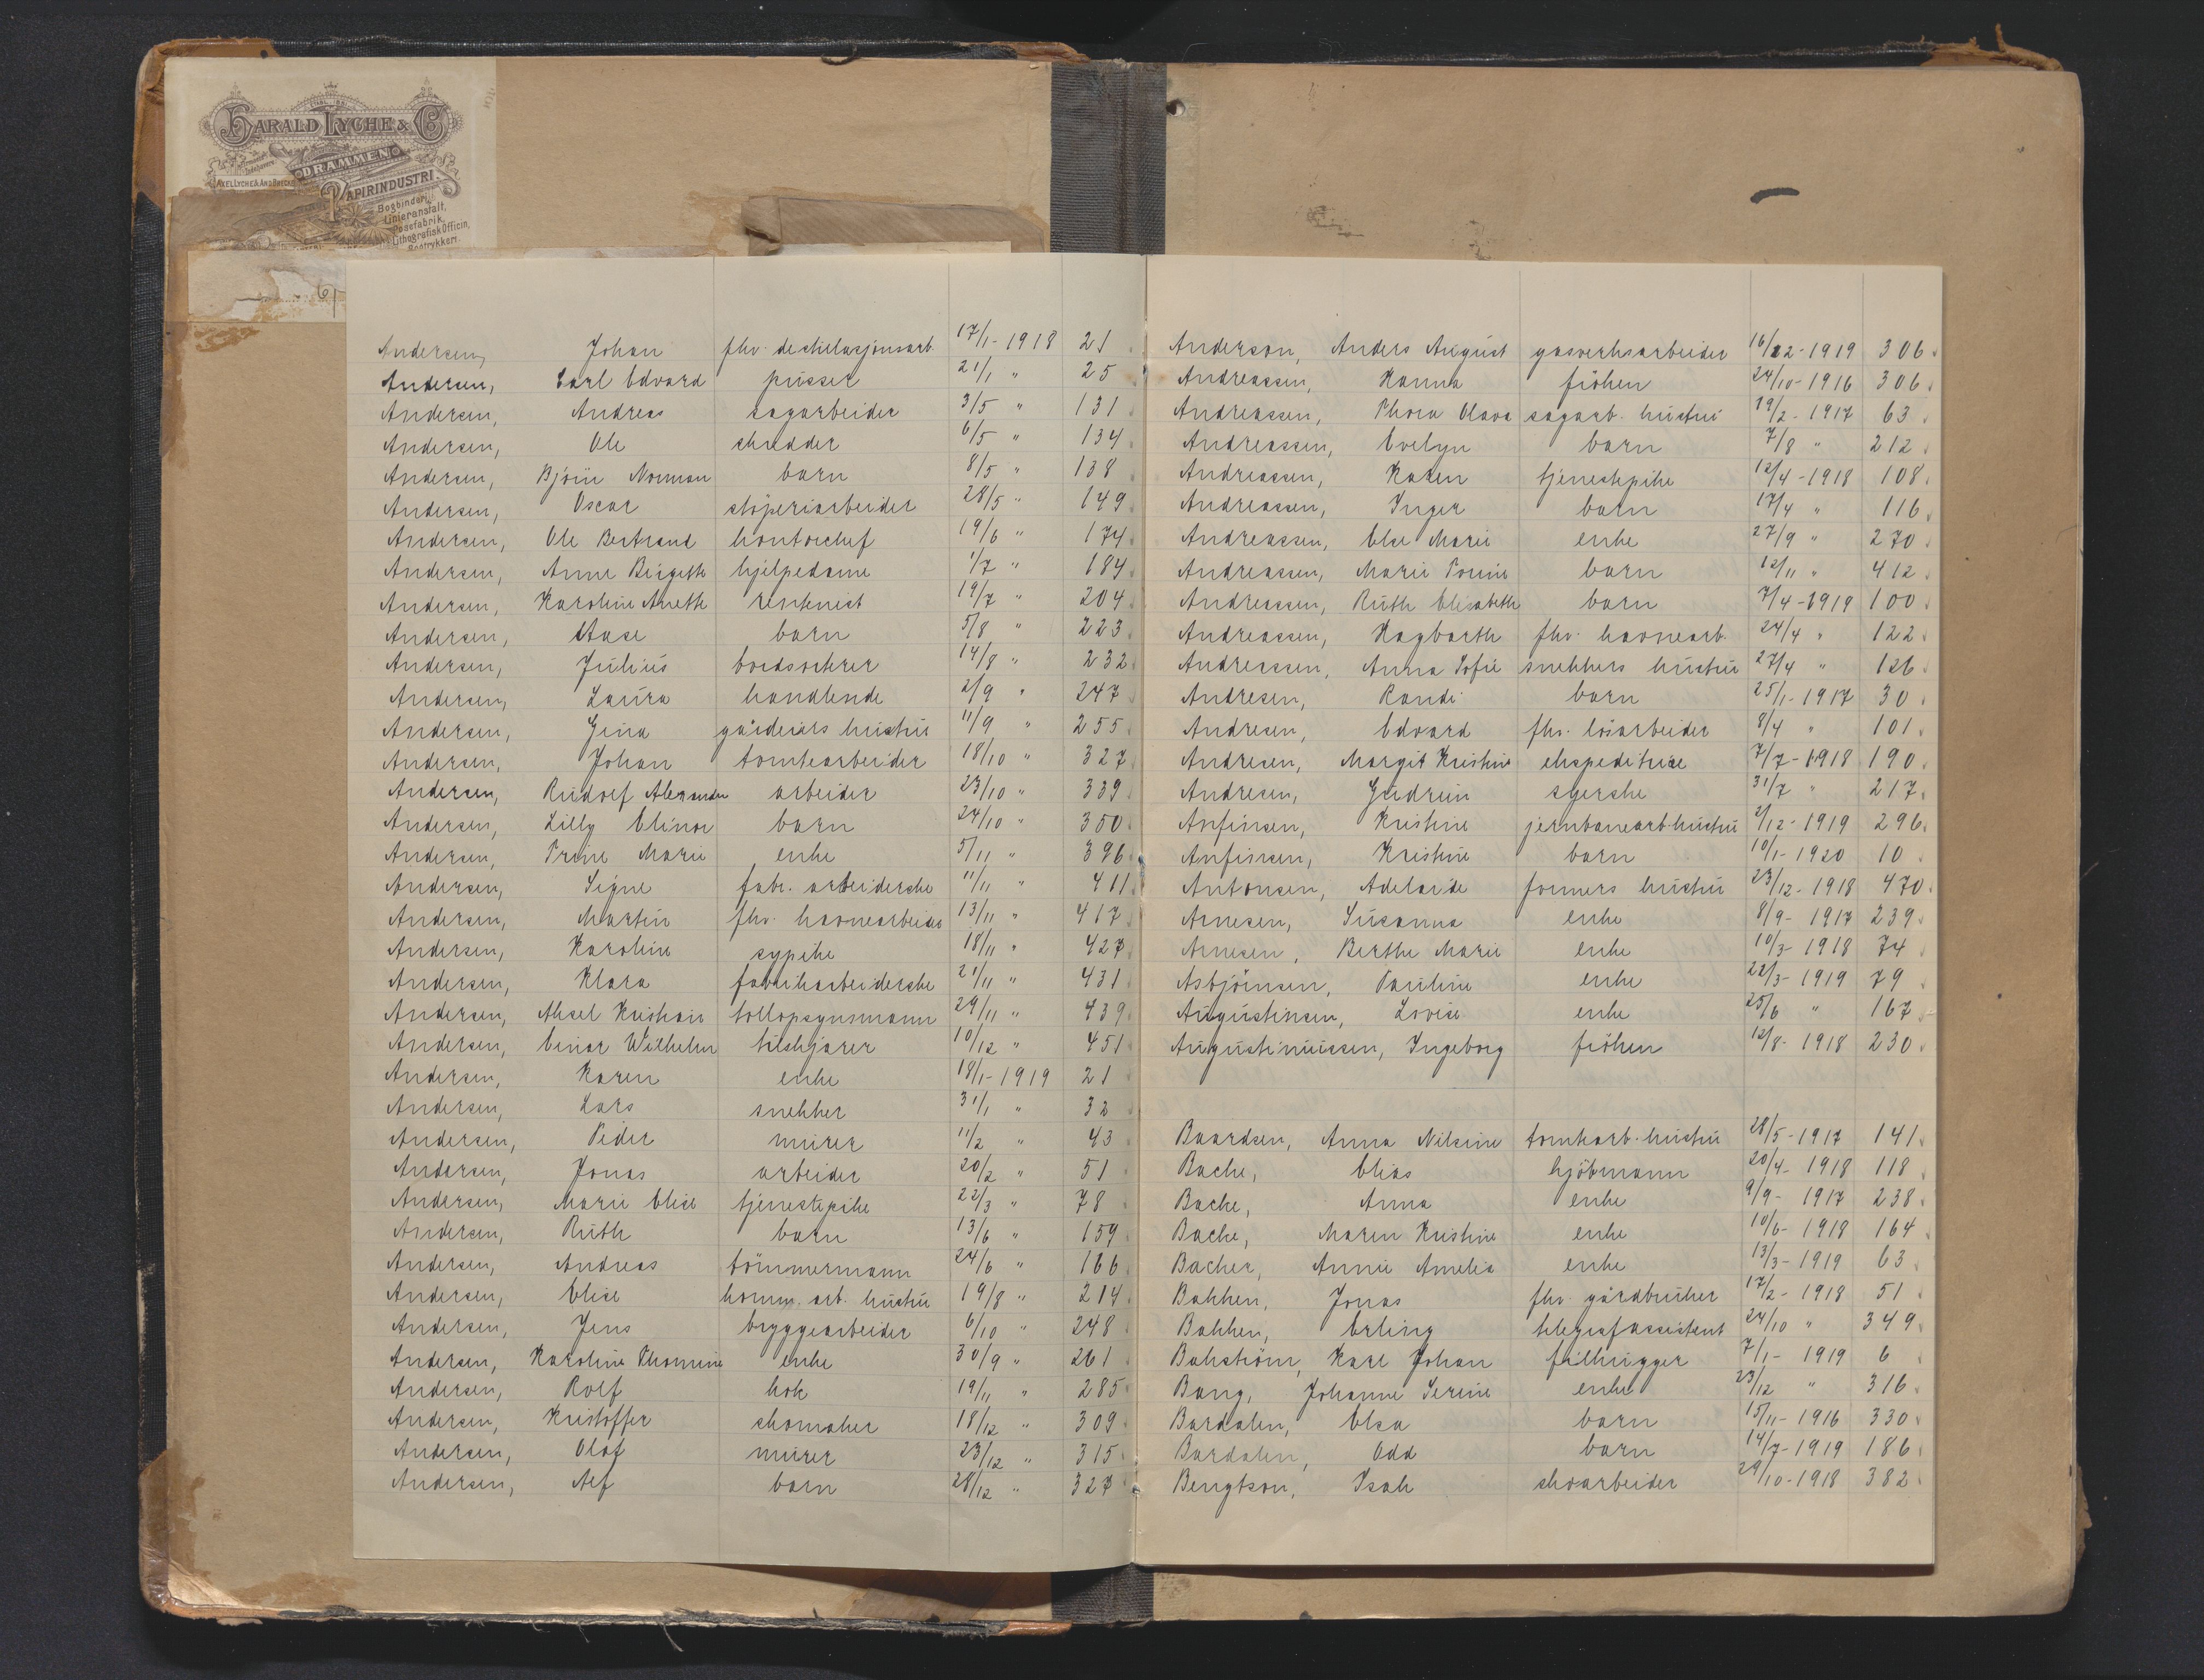 HARALD LYCHE & Co
DRAMMEN
PAPIRINDUSTRI.
Bogbinderi,
Linieranstalt,
Posefabrik,
Lithografisk Officin,
Bogtrykkeri
Andersen, Johan fhv. destilasjonsarb. 17/1-1918 21
Andersen, Carl Edvard pusser 21/1 " 25
Andersen, Andreas sagarbeider 3/5 " 131
Andersen, Ole skredder 6/5 " 134
Andersen, Björn Norman barn 8/5 " 138
Andersen, Oscar støperiarbeider 28/5 " 149
Andersen, Ole Bertrand kontorchef 19/6 " 174
Andersen, Anne Birgitte hjelpedame 1/7 " 184
Andersen, Karoline Anette rentenist 19/7 " 204
Andersen, Aase barn 5/8 " 223
Andersen, Julius bordsorterer 14/8 " 232
Andersen, Laura handlende 2/9 " 247
Andersen, Gina gårdeiers hustru 11/9 " 255
Andersen, Johan tomtearbeider 18/10 " 327
Andersen, Rudolf Alexander arbeider 23/10 " 339
Andersen, Lilly Elinor barn 24/10 " 350
Andersen, Trine Marie enke 5/11 " 396
Andersen, Signe fabr. arbeiderske 11/11 " 411
Andersen, Martin fhv. havnearbeider 13/11 " 417
Andersen, Karoline sypike 18/11 " 427
Andersen, Klara fabrikarbeiderske 21/11 " 431
Andersen, Aksel Kristian tollopsynsmann 29/11 " 439
Andersen, Einar Wilhelm tilskjærer 10/12 " 451
Andersen, Karen enke 18/1-1919 21
Andersen, Lars snekker 31/1 " 32
Andersen, Peder murer 11/2 " 43
Andersen, Jonas arbeider 20/2 " 51
Andersen, Marie Elise tjenestepike 22/3 " 78
Andersen, Ruth barn 13/6 " 159
Andersen, Andreas tömmermann 24/6 " 166
Andersen, Elise komm. arb. hustru 19/8 " 214
Andersen, Jens bryggearbeider 6/10 " 248
Andersen, Karoline Thomine enke 30/9 " 261
Andersen, Rolf kok 19/11 " 285
Andersen, Kristoffer skomaker 18/12 " 309
Andersen, Olaf murer 23/12 " 315
Andersen, Alf barn 28/12 " 327
Anderson, Anders August gasverksarbeider 16/12-1919 306
Andreassen, Hanna fröken 24/10-1916 306
Andreassen, Thora Olava sagarb. hustru 19/2-1917 63
Andreassen, Evelyn barn 7/8 " 212
Andreassen, Karen tjenestepike 12/4-1918 108
Andreassen, Inger barn 17/4 " 116
Andreassen, Else Marie enke 27/9 " 270
Andreassen, Marie Torine barn 12/11 " 412
Andreassen, Ruth Elisabeth barn 7/4-1919 100
Andreassen, Hagbarth fhv. havnearb. 24/4 " 122
Andreassen, Anna Sofie snekkers hustru 27/4 " 126
Andresen, Randi barn 25/1-1917 30
Andresen, Edvard fhv. løsarbeider 8/4 " 101
Andresen, Margit Kristine ekspeditrise 7/7-1918 190
Andresen, Gudrun syerske 31/7 " 217
Anfinsen, Kristine jernbanearb.hustru 2/12-1919 296
Anfinsen, Kristine barn 10/1-1920 10
Antonsen, Adelaide formers hustru 23/12-1918 470
Arnesen, Susanna enke 8/9-1917 239
Arnesen, Berthe Marie enke 10/3-1918 74
Asbjörnsen, Pauline enke 22/3-1919 79
Augustinsen, Lovise enke 25/6 " 167
Augustinussen, Ingeborg fröken 12/8-1918 230
Baardsen, Anna Nilsine tomtarb.hustru 28/5-1917 141
Bache, Elias kjöbmann 20/4-1918 118
Bache, Anna enke 9/9-1917 238
Bache, Maren Kristine enke 10/6-1918 164
Bacher, Annie Amelia enke 13/3-1919 63
Bakken, Jonas fhv. gårdbruker 17/2-1918 51
Bakken, Erling telegrafassistent 24/10 " 349
Bakström, Karl Johan filhugger 7/1-1919 6
Bang, Johanne Serine enke 23/12 " 316
Bardalen, Elsa barn 15/11-1916 330
Bardalen, Odd barn 14/7-1919 186
Bengtson, Isak skoarbeider 29/10-1918 382